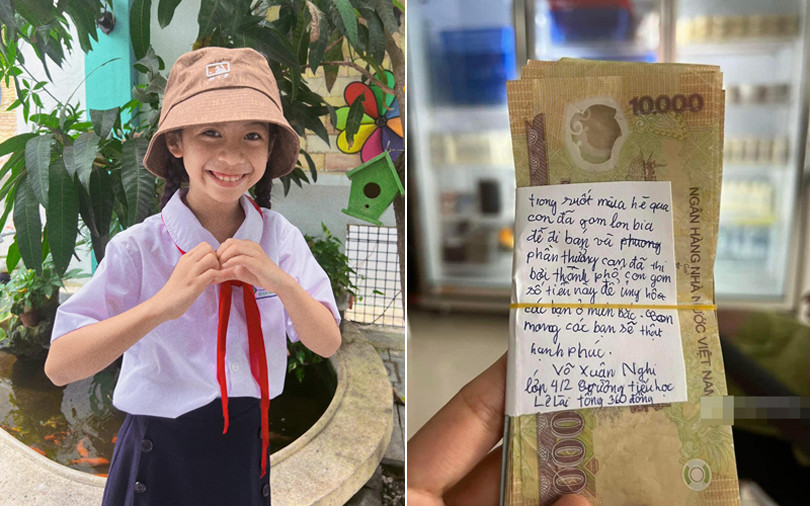 10.000
NGÂN HÀNG NHÀ NƯỚC VIỆT NAM
trong suốt mùa hè qua
con đã gom lon bia
để đi bán và phương
phần thưởng con đã thi
bơi thành phố con gom
số tiền này để ủng hộ
các bạn ở miền bắc. con
mong các bạn sẽ thật
hạnh phúc.
Võ Xuân Nghi
lớp 4/2 trường tiểu học
Lê Lai tổng 360 đồng
000